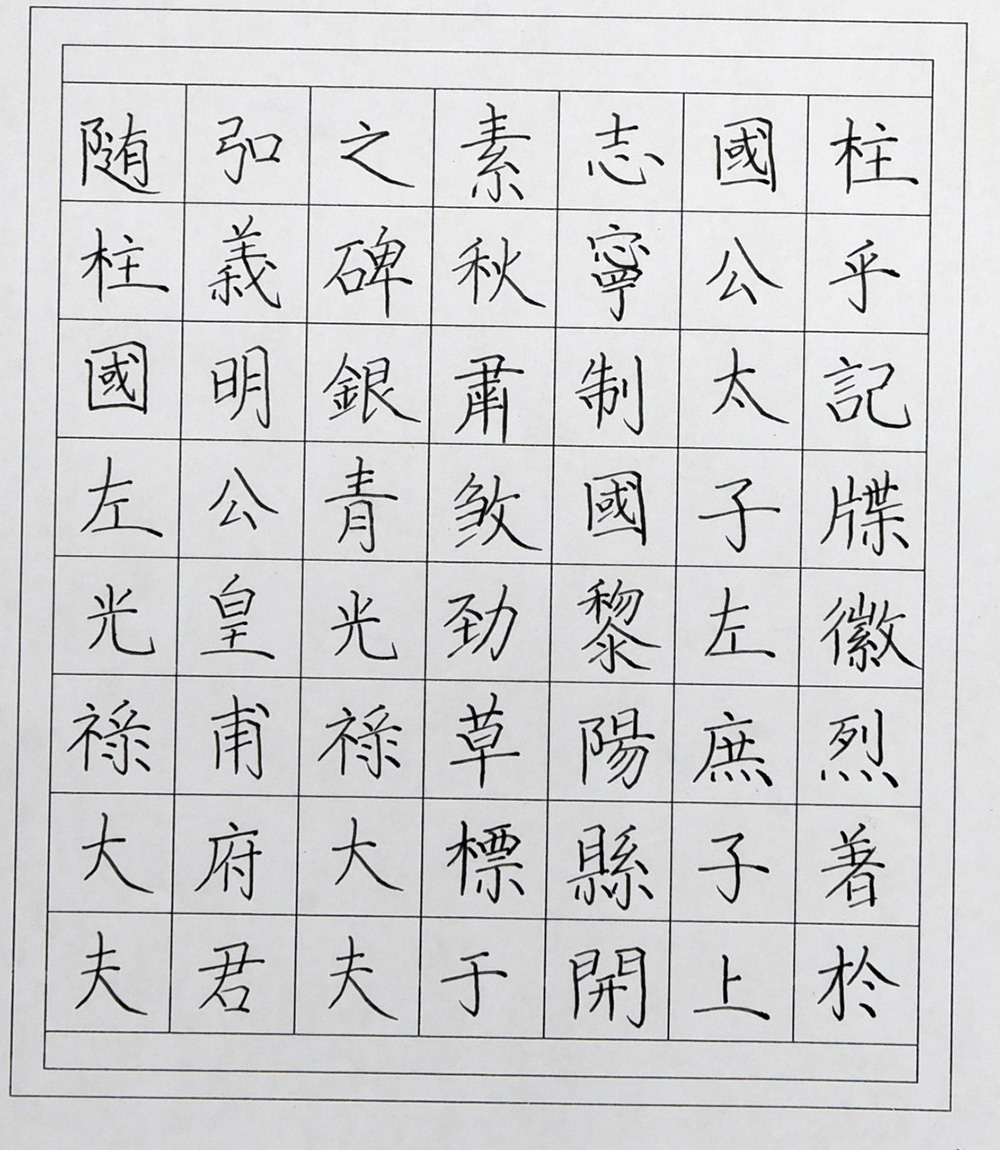 随柱國左光禄大夫
弘義明公皇甫府君
之碑銀青光禄大夫
素秋肅煞勁草標于
志寧制國黎陽縣開
國公太子左庶子上
柱乎記牒徽烈著於